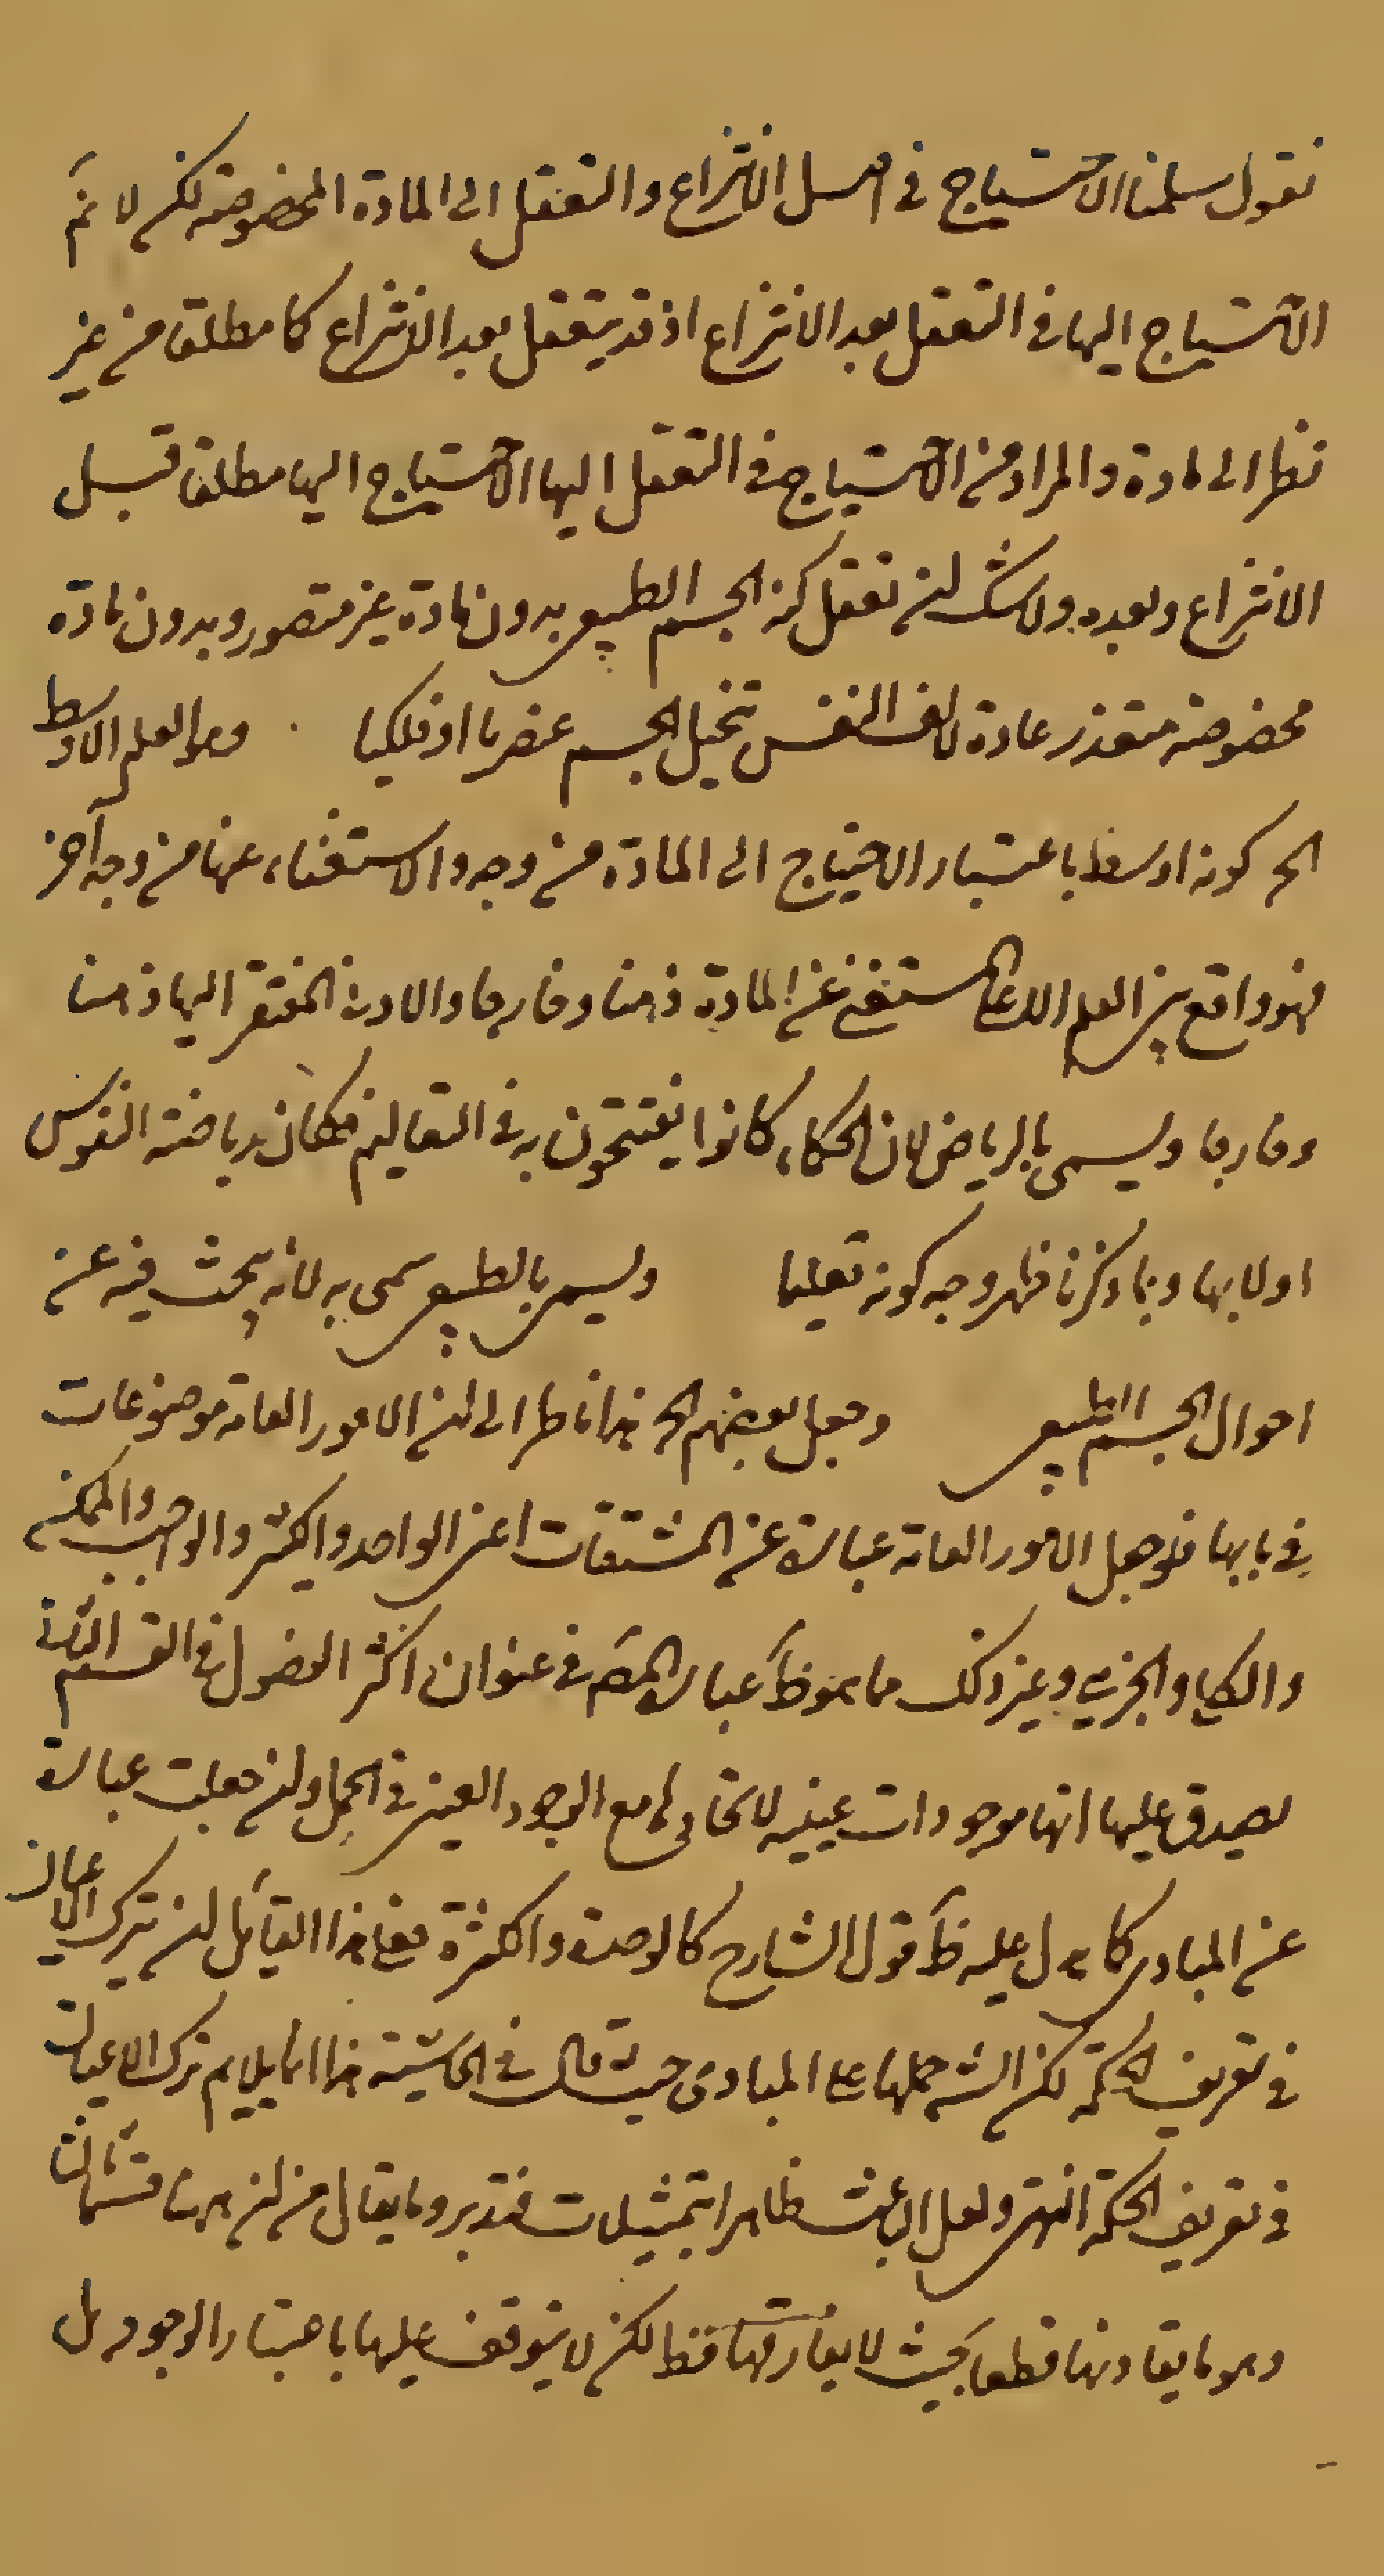 نقول سلمنا الاحتياج في اصل الانتزاع والتعقل الى المادة المخصوصة لكن لا نم
الاحتياج اليها في التعقل بعد الانتزاع اذ قد يتعقل بعد الانتزاع كما مطلقا من غير
نظر الى مادة والمراد من الاحتياج في التعقل اليها الاحتياج اليها مطلقا قبل
الانتزاع وبعده ولا شك ان تعقل كنه الجسم الطبيعي بدون مادة غير متصور وبدون مادة
مخصوصة متعذر عادة لالف النفس تخيل الجسم عنصريا او فلكيا وهو العلم الاوسط
الخ كونه اوسط باعتبار الاحتياج الى المادة من وجه والاستغناء عنها من وجه آخر
فهو واقع بين العلم الاعلى المستغني عن المادة ذهنا وخارجا والادنى المفتقر اليها ذهنا
وخارجا ويسمى بالرياضي لان الحكماء كانوا يفتتحون به في التعاليم فكان رياضة النفوس
اولا بها وبما ذكرنا ظهر وجه كونه تعليما ويسمى بالطبيعي سمى به لانه يبحث فيه عن
احوال الجسم الطبيعي وجعل بعضهم الخ هذا ناظر الى ان الامور العامة موضوعات
في بابها فلو جعل الامور العامة عبارة عن المشتقات اعني الواحد والكثير والواجب والممكن
والكلي والجزيي وغير ذلك مما هو ظ عبارة المص في عنوان اكثر الفصول في القسم الثاني
يصدق عليها انها موجودات عينية مع الوجود العيني في الجملة وان جعلت عبارة
عن المبادى كما يدل عليه ظ قول الشارح كالوحدة والكثرة فعلى هذا القائل ان يترك الاعيان
في تعريف الحكمة لكن الش حملها على المبادى حيث قال في الحاشية هذا انما يلايم ترك الاعيان
في تعريف الحكمة انتهى ولعل الباعث ظاهرا تمثيلات فتدبر وما يقال من ان ههنا قسما ثالثا
وهو ما يقارنها قطعا بحيث لا يفارقها قط لكن لا يتوقف عليها باعتبار الوجود بل